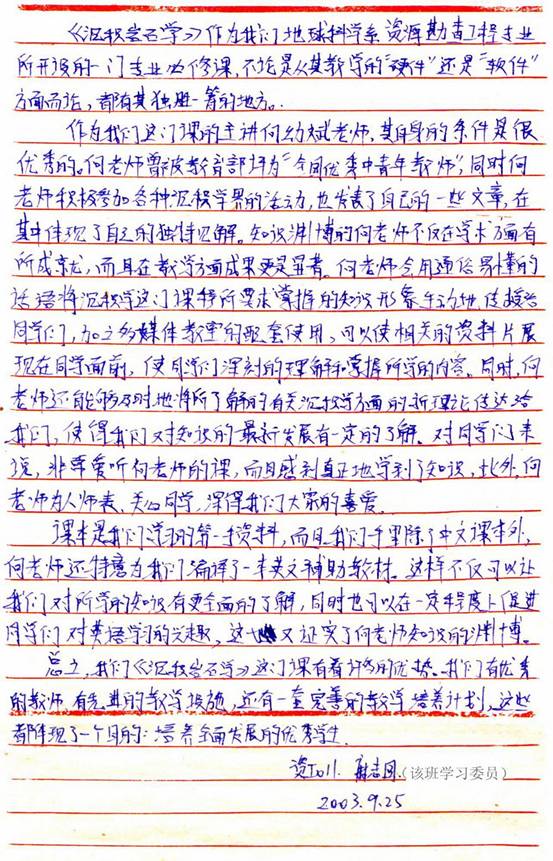 《沉积岩石学》作为我们地球科学系资源勘查工程专业
所开设的一门专业必修课,不论是从其教学的“硬件”还是“软件”
方面而论,都有其独胜一筹的地方。
作为我们这门课的主讲何幼斌老师,其自身的条件是很
优秀的。何老师曾被教育部评为“全国优秀中青年教师”,同时何
老师积极参加各种沉积学界的活动,也发表了自己的一些文章,在
其中体现了自己的独特见解。知识渊博的何老师不仅在学术方面有
所成就,而且在教学方面成果更是显著。何老师会用通俗易懂的
话语将沉积学这门课程所要求掌握的知识形象生动地传授给
同学们,加之多媒体教室的配套使用,可以使相关的资料片展
现在同学面前,使同学们深刻的理解和掌握所学的内容。同时,何
老师还能够及时地将所了解的有关沉积学方面的新理论传达给
我们,使得我们对知识的最新发展有一定的了解。对同学们来
说,非常爱听何老师的课,而且感到真正地学到了知识,此外,何
老师为人师表、关心同学,深得我们大家的喜爱。
课本是我们学习的第一手资料,而且我们手里除了中文课本外,
何老师还特意为我们编译了一本英文辅助教材。这样不仅可以让
我们对所学的知识有更全面的了解,同时也可以在一定程度上促进
同学们对英语学习的兴趣,这也又证实了何老师知识的渊博。
总之,我们《沉积岩石学》这门课有着许多的优势。我们有优秀
的教师,有先进的教学措施,还有一套完善的教学培养计划,这些
都体现了一个目的:培养全面发展的优秀学生。
资1011. (该班学习委员)
2003.9.25